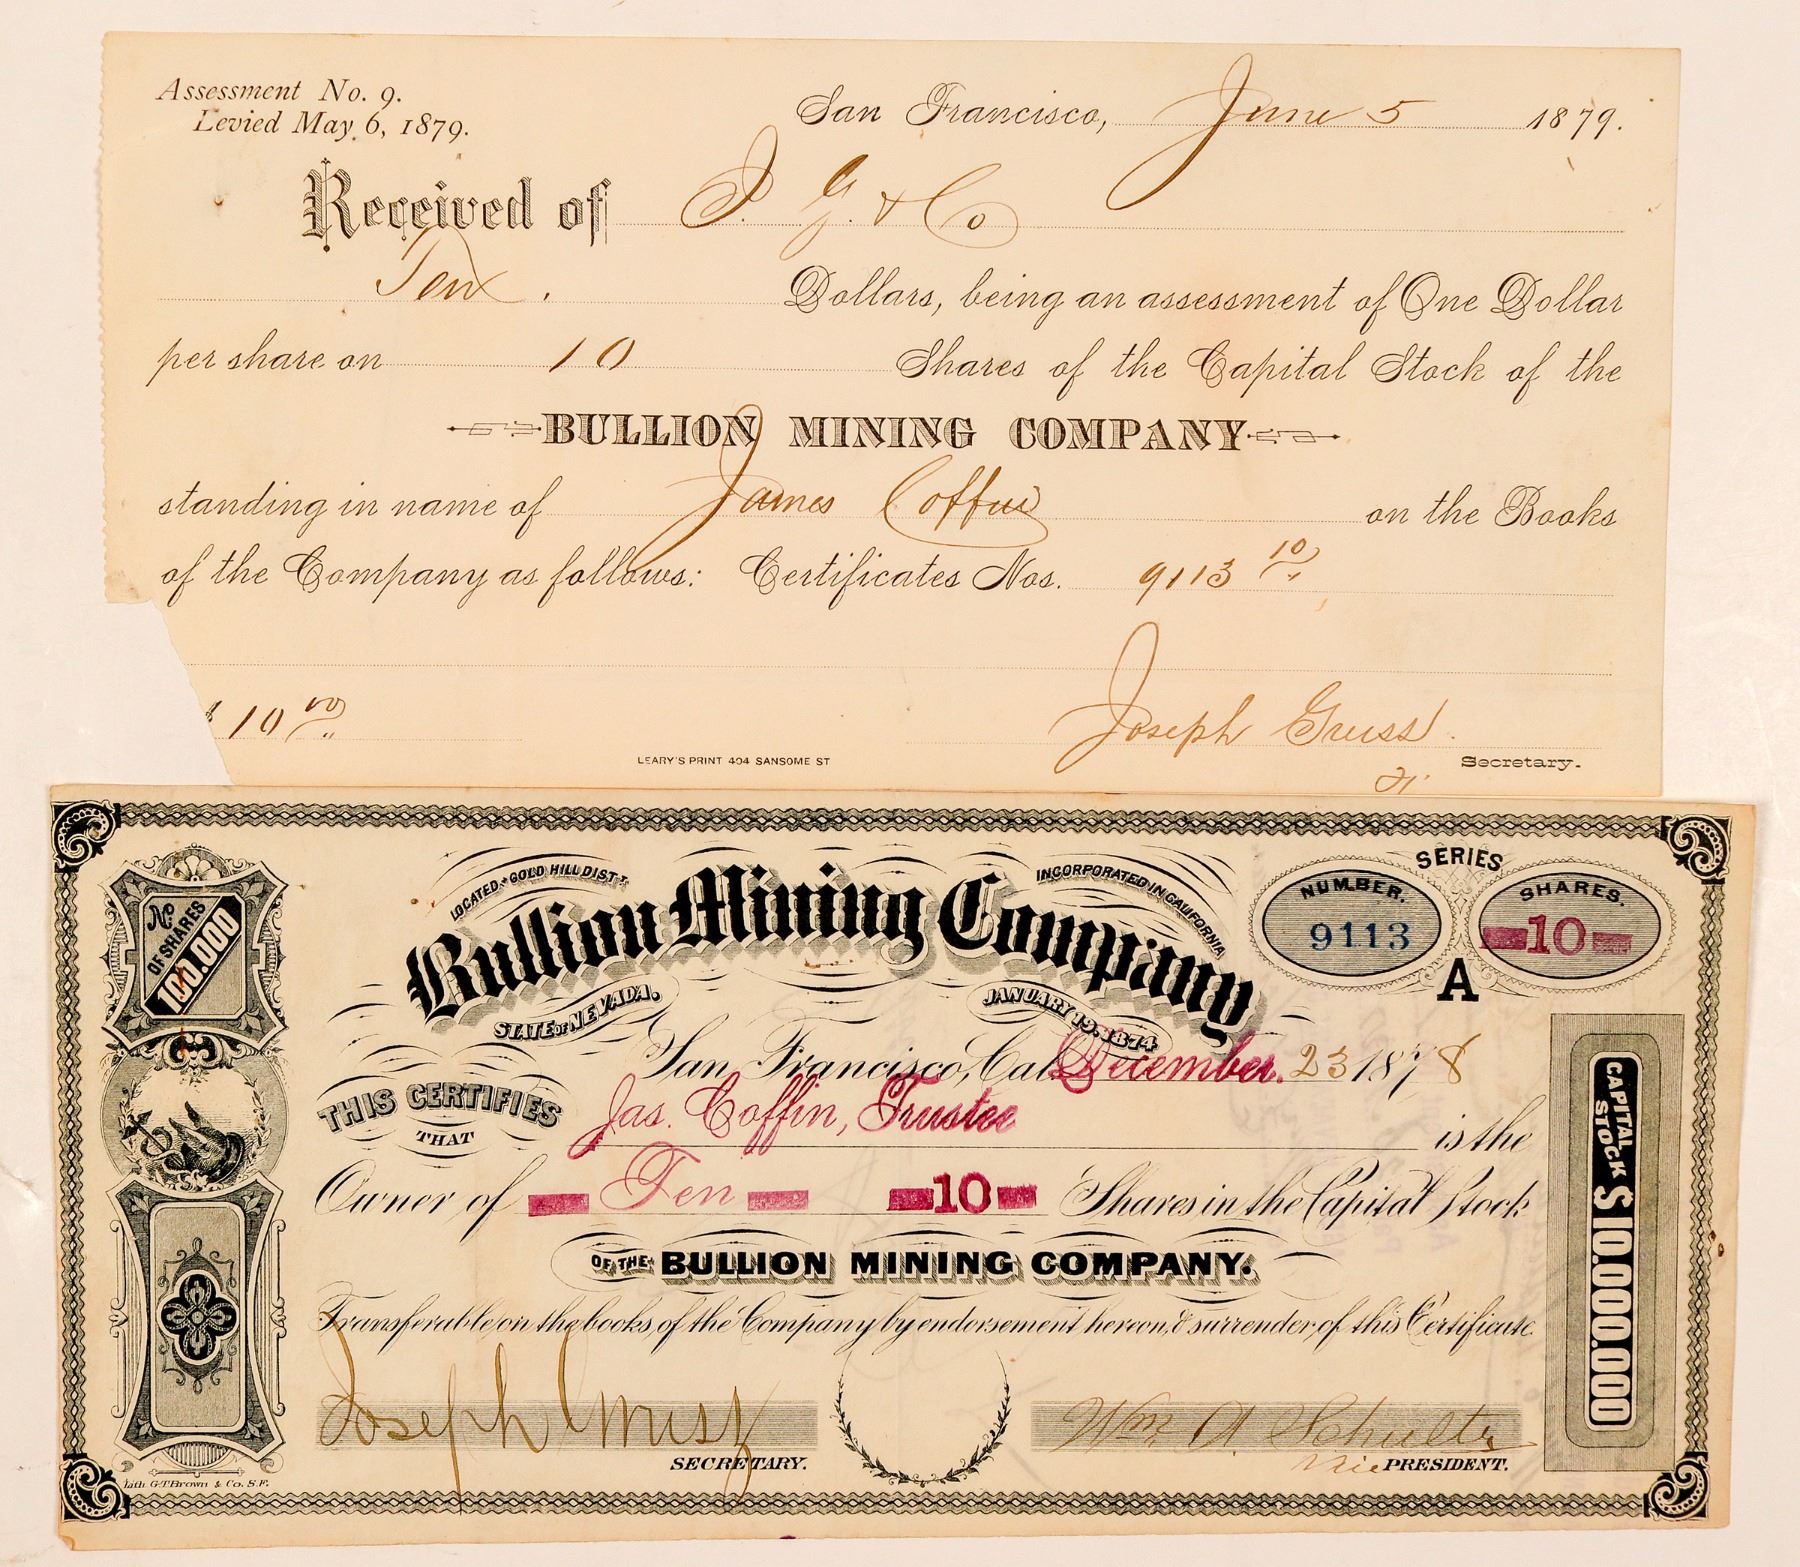 Assessment No. 9.
Levied May 6, 1879.
San Francisco, June 5 1879.
Received of J. G. & Co
Ten. Dollars, being an assessment of One Dollar
per share on 10 Shares of the Capital Stock of the
BULLION MINING COMPANY
standing in name of James Coffin on the Books
of the Company as follows: Certificates Nos. 9113 10/..
$ 10 00/..
Joseph Gruss.
Secretary.
LEARY'S PRINT 404 SANSOME ST
No OF SHARES 100.000
LOCATED GOLD HILL DIST.
INCORPORATED IN CALIFORNIA
Bullion Mining Company
STATE OF NEVADA.
JANUARY 19. 1874
SERIES
NUMBER.
9113
SHARES.
10
A
San Francisco, Cal. December. 23 1878
THIS CERTIFIES
THAT
Jas. Coffin, Trustee is the
Owner of Ten 10 Shares in the Capital Stock
OF THE BULLION MINING COMPANY.
Transferable on the books of the Company by endorsement hereon, & surrender of this Certificate.
Joseph Gruss
SECRETARY.
Wm. A. Schultz
Vice PRESIDENT.
CAPITAL STOCK $10.000.000
Lith. G.T. Brown & Co. S.F.